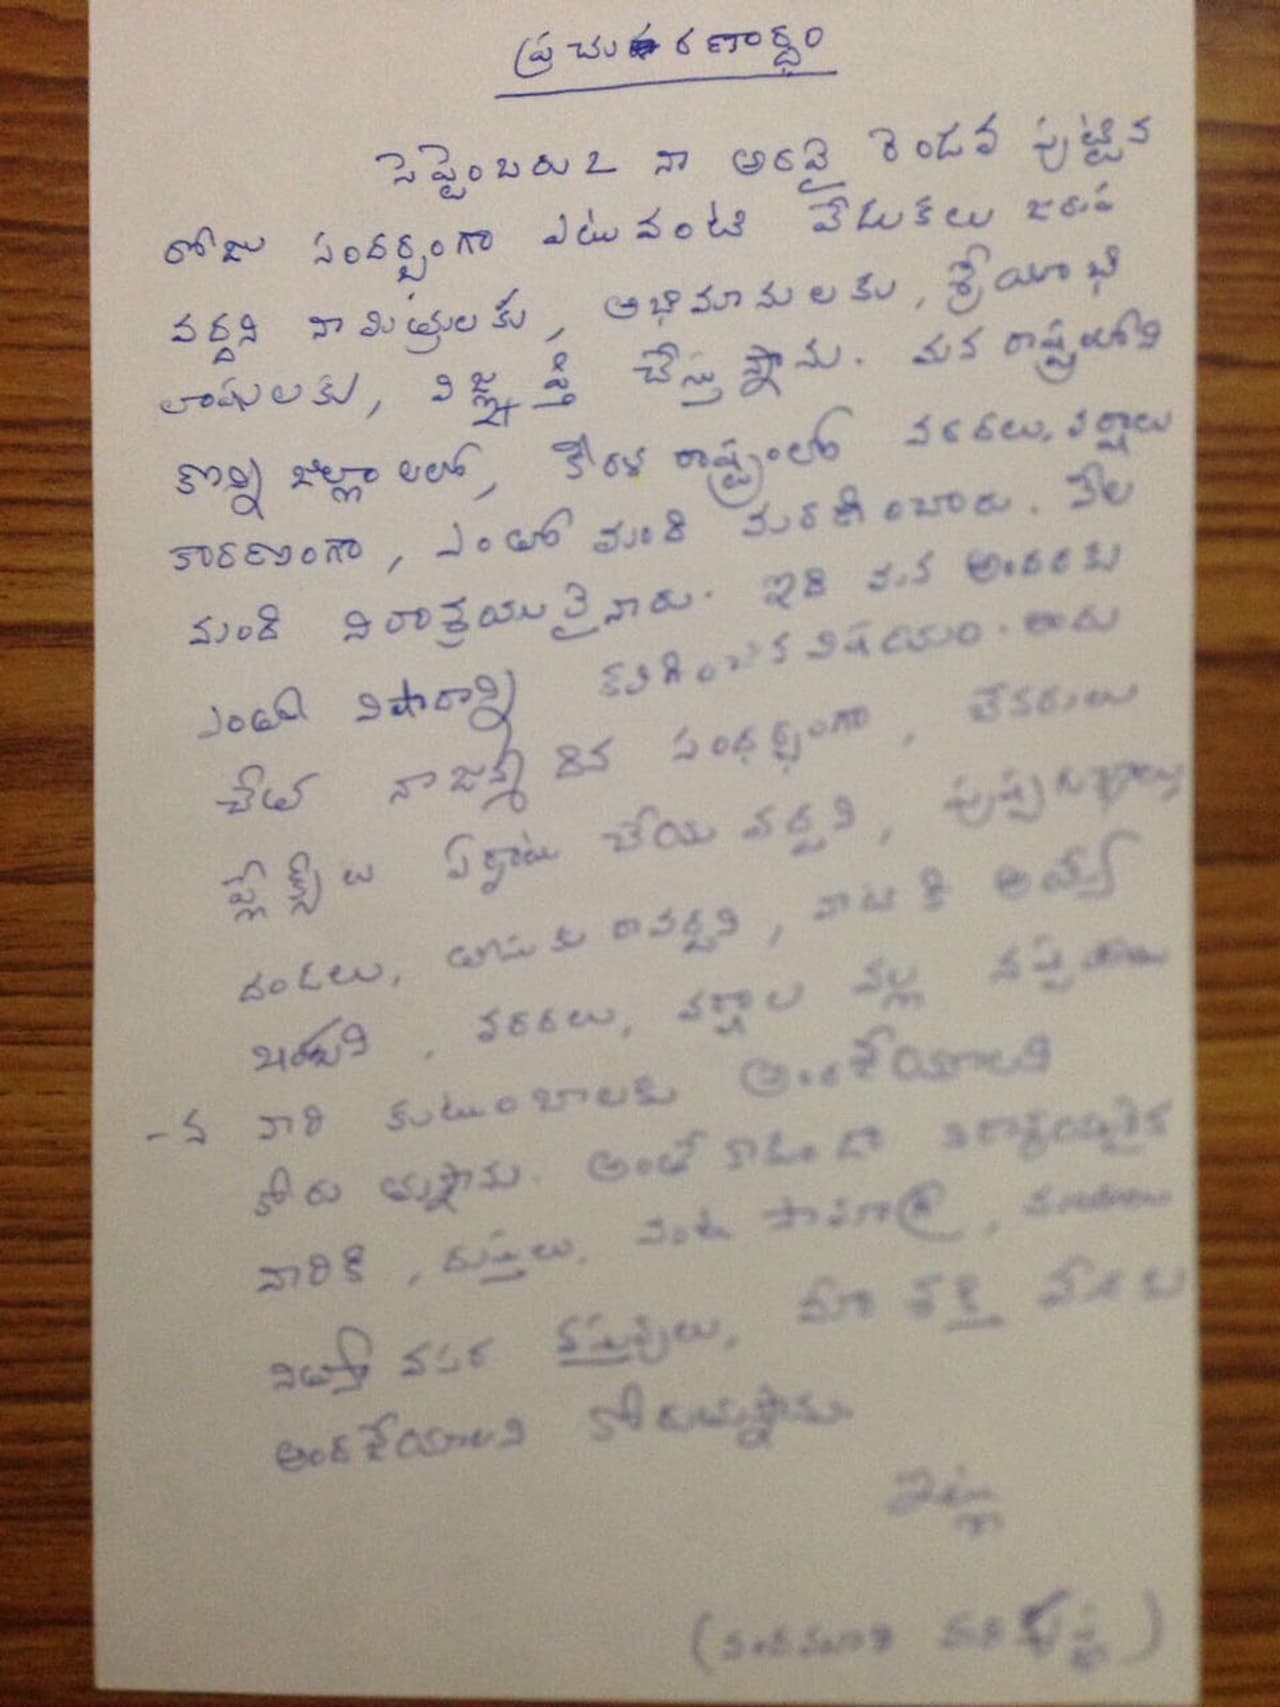 ప్రచురణార్థం
సెప్టెంబరు 2 నా అరవై రెండవ పుట్టిన
రోజు సందర్భంగా ఎటువంటి వేడుకలు జరుప
వద్దని నా మిత్రులకు, అభిమానులకు, శ్రేయాభి
లాషులకు, విజ్ఞప్తి చేస్తున్నాను. మన రాష్ట్రములోని
కొన్ని జిల్లాలలో, కేరళ రాష్ట్రంలో వరదలు, వర్షాలు
కారణంగా, ఎంతో మంది మరణించారు. వేల
మంది నిరాశ్రయులైనారు. ఇది మన అందరకు
ఎంతో విషాదాన్ని కలిగించిన విషయం. అందు
చేత నా జన్మదిన సందర్భంగా, బేనరులు
ఫ్లెక్సీలు ఏర్పాటు చేయవద్దని, పుష్పగుచ్ఛాలు,
దండలు, తీసుకురావద్దని, వాటికి అయ్యే
ఖర్చుని, వరదలు, వర్షాల వల్ల నష్టపోయి
-న వారి కుటుంబాలకు అందచేయాలని
కోరుతున్నాను. అంతేకాకుండా నిరాశ్రయులైన
వారికి, దుస్తులు, వంట సామాగ్రి, మందులు
నిత్యావసర వస్తువులు, మా శక్తి మేరకు
అందచేయాలని కోరుతున్నాను.
ఇట్లు
(నందమూరి హరికృష్ణ)